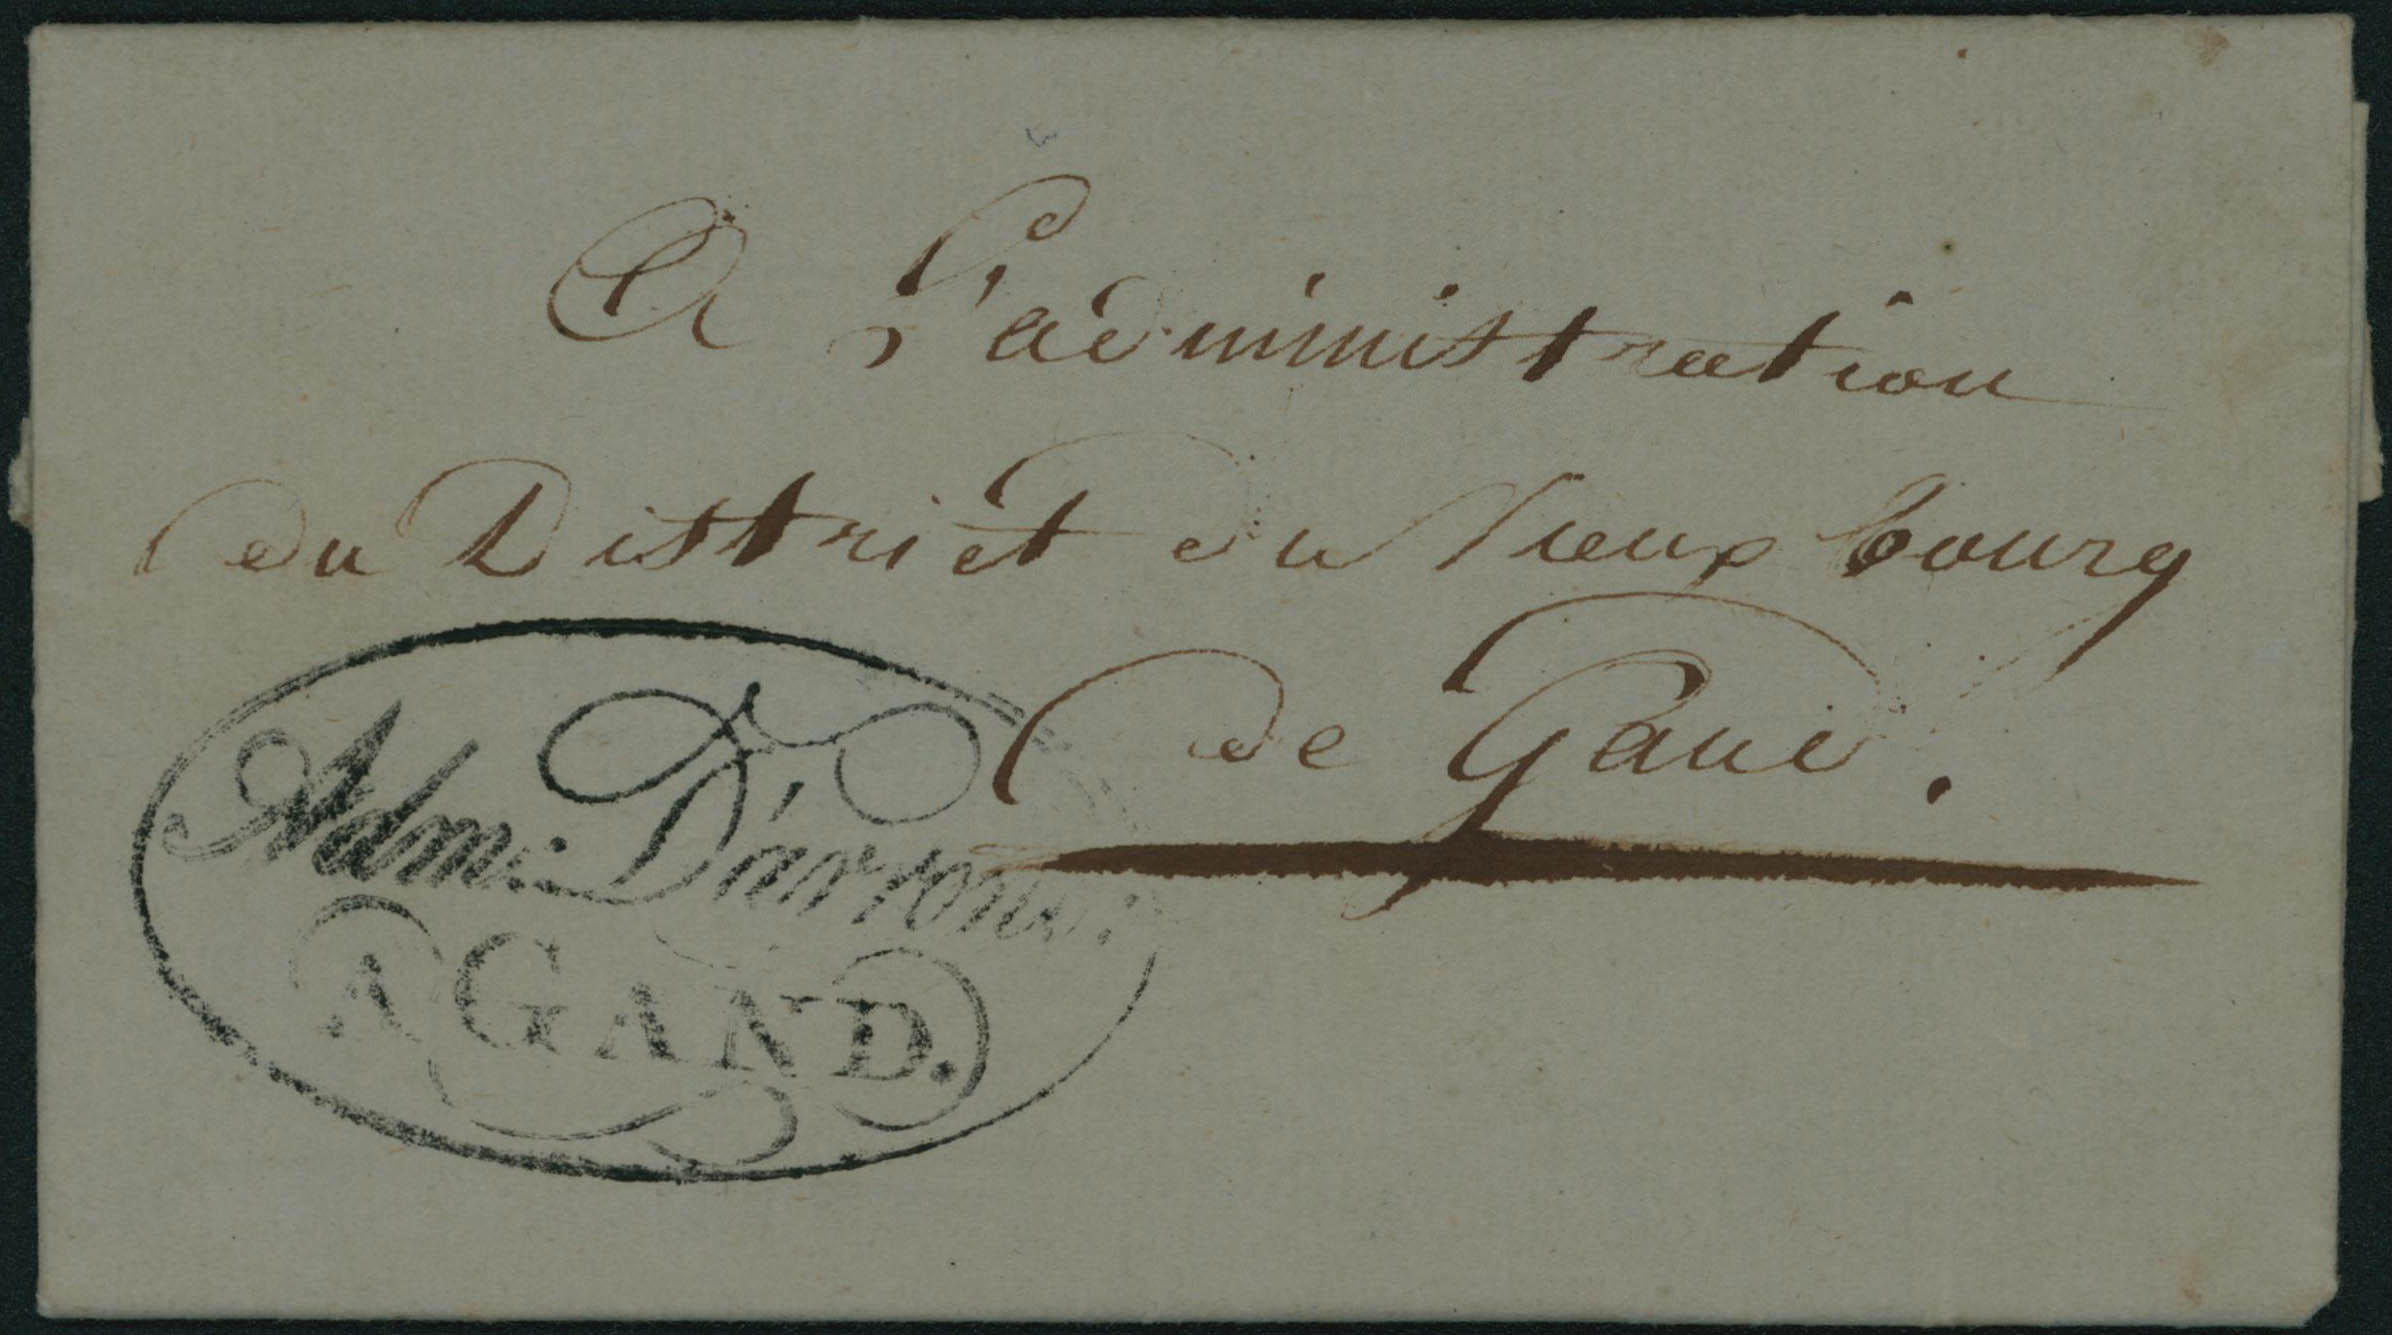 A L'administration
du District du Vieux bourg
de Gand.
Adm: D'arrond:
A GAND.